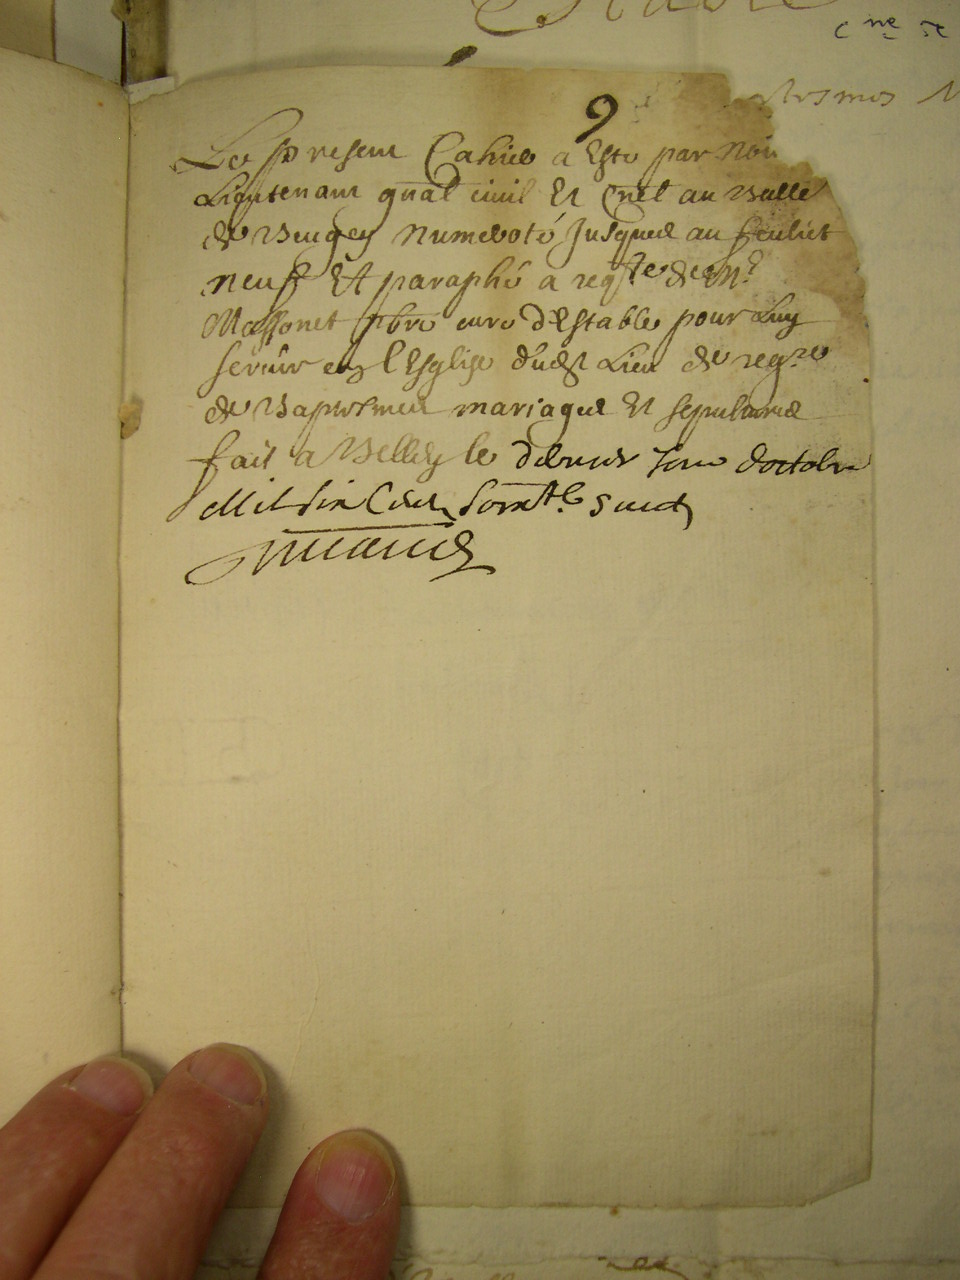 9
Le present Cahier a Esté par Nou
Lieutenant gnãl civil Et Cnel au Balle
de Beugey Numeroté Jusques au feuliet
neuf Et paraphé a reqte de Mre
Massonet pbre curé d'Estables pour Luy
servir en l'Esglise dudt Lieu de regre
de Baptesmes mariages Et sepultures
fait a Belley le dernier Jour doctobre
Mil six Cens Soixte sept